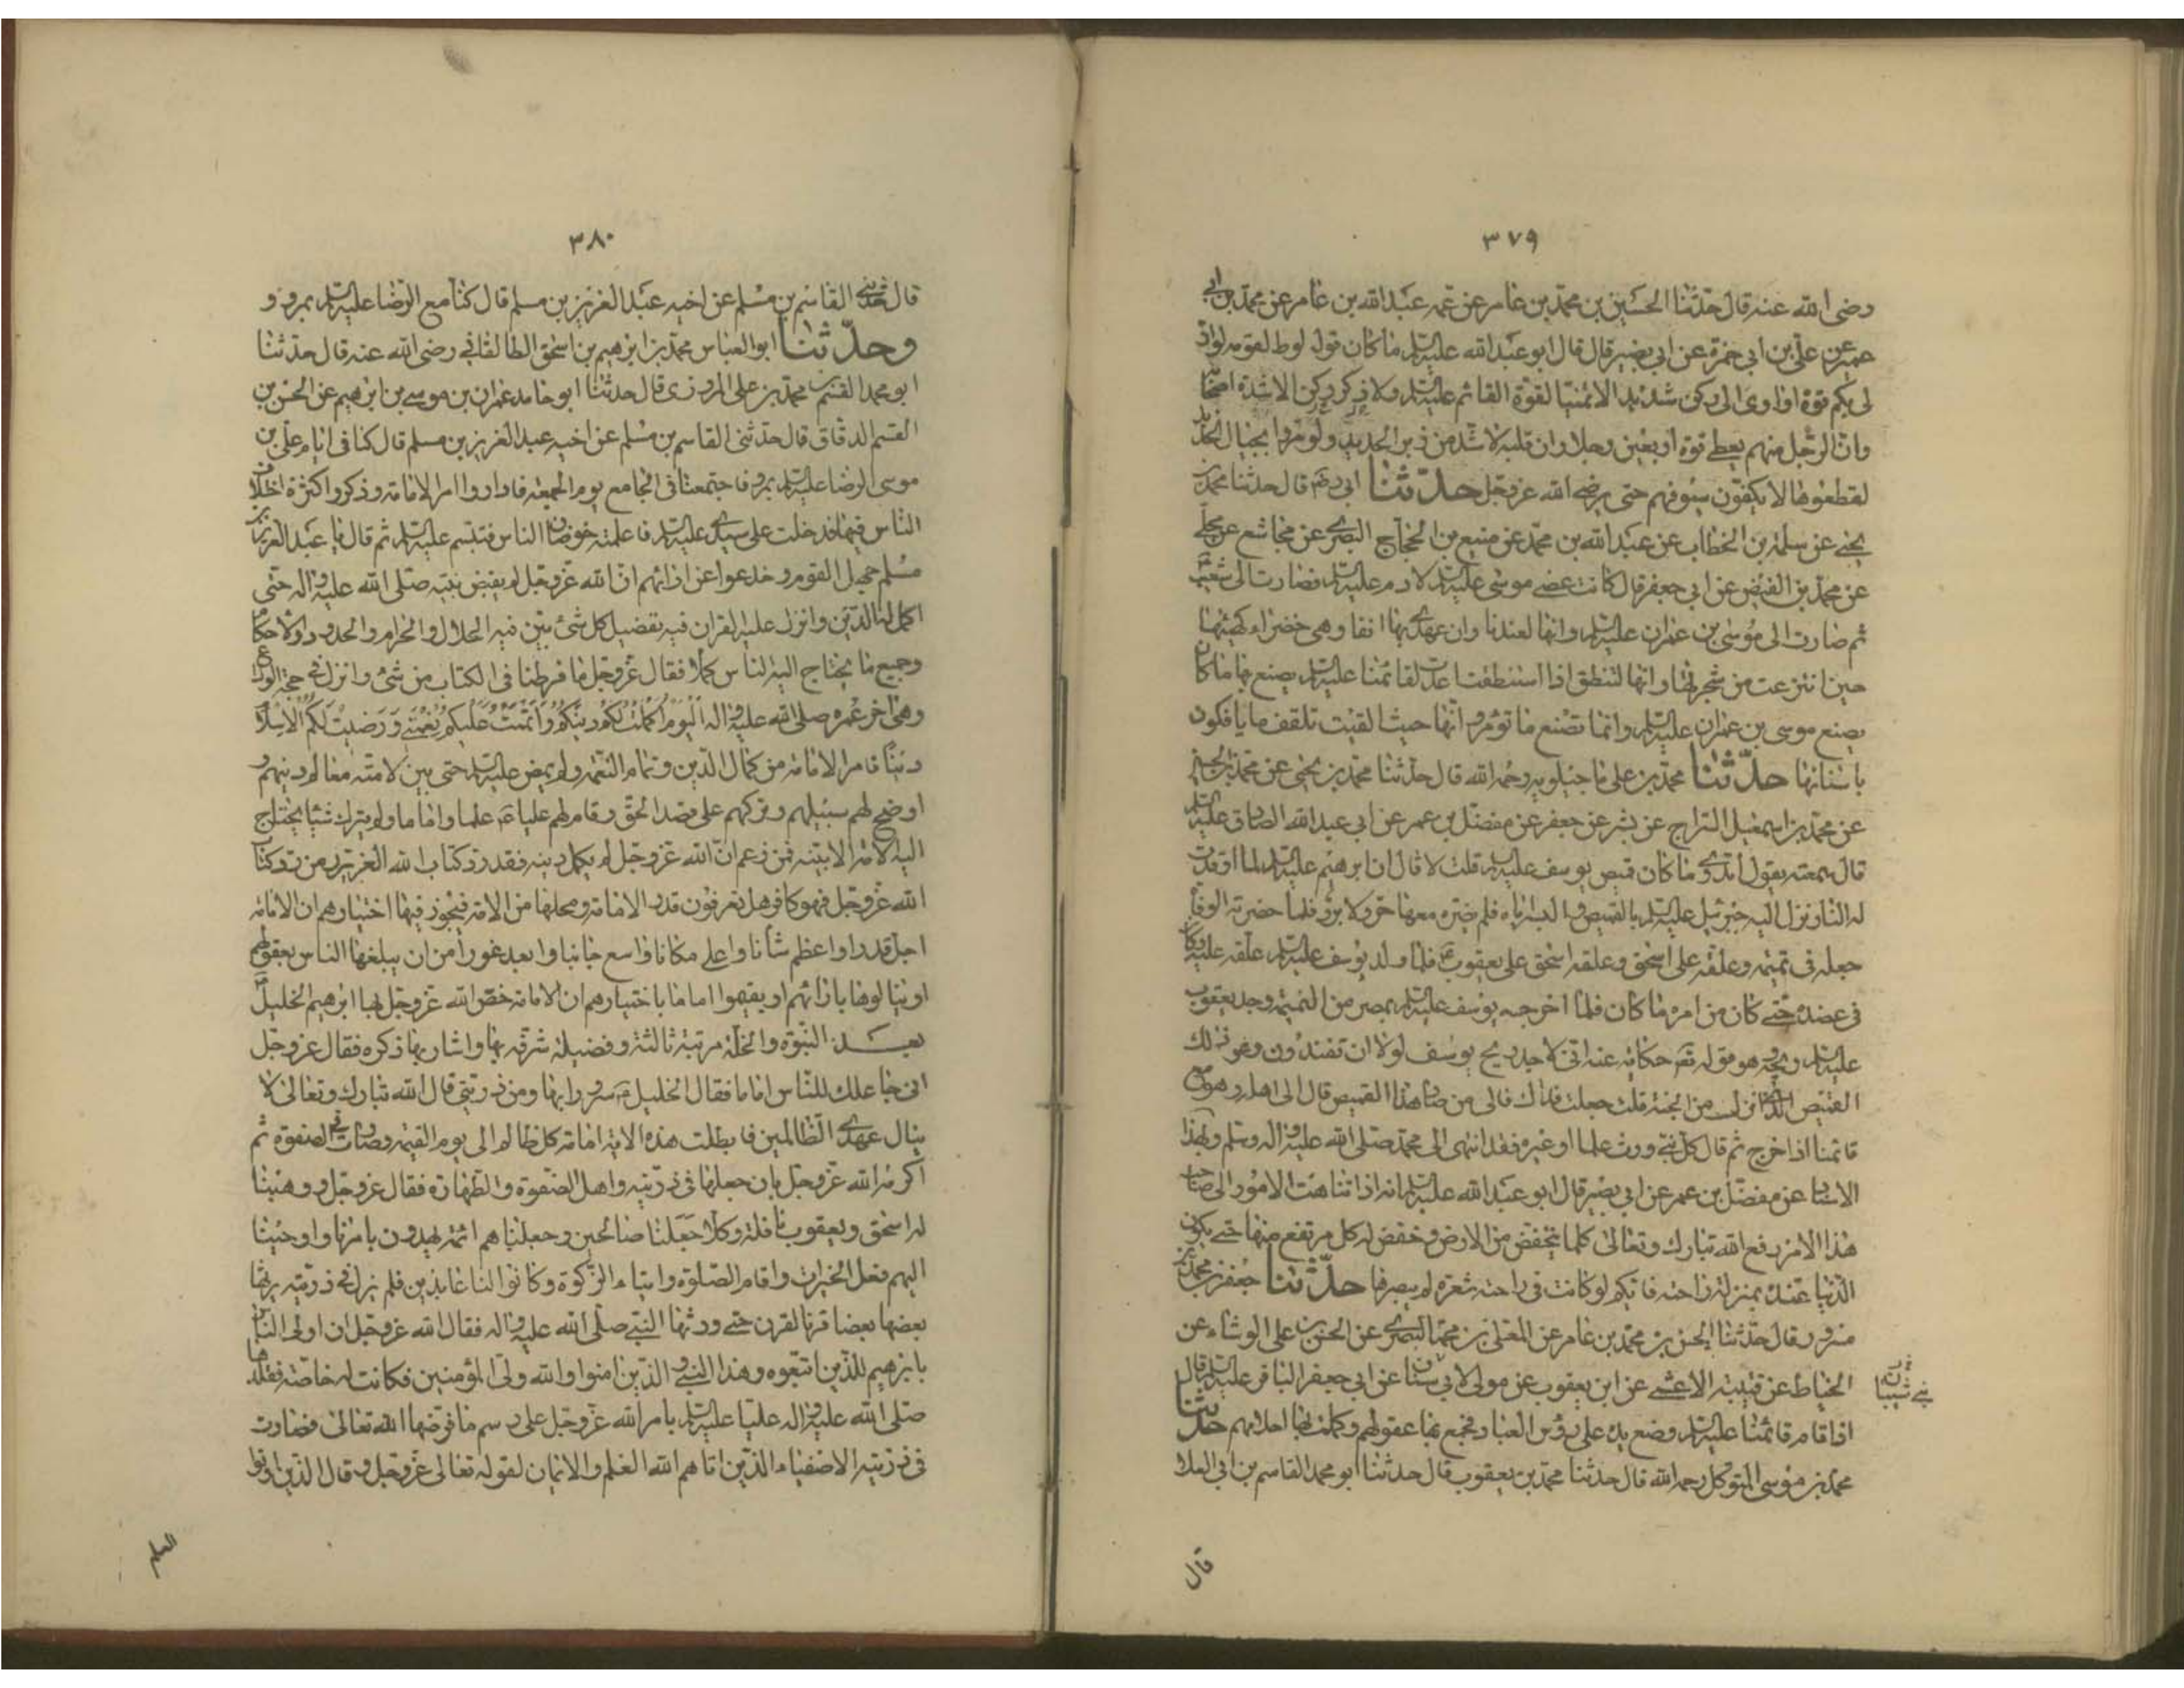 ٣٧٩
رضى الله عنه قال حدّثنا الحسين بن محمّد بن عامر عن عمّه عبد الله بن عامر عن محمّد بن ابى
عمير عن علىّ بن ابى حمزة عن ابى بصير قال قال ابو عبد الله عليه السلام ما كان قول لوط لقومه لو انّ
لى بكم قوة او اوى الى ركن شديد الا تمنيا لقوة القائم عليه السلام ولا ذكر ركن الا شدة اصحابه
وانّ الرّجل منهم يعطى قوة اربعين رجلا وان قلبه لاشد من زبر الحديد ولو مروا بجبال الحديد
لقطعوها لا يكفّون سيوفهم حتى يرضى الله عز وجل حدّثنا ابى ره قال حدثنا محمد بن
يحيى عن سلمة بن الخطاب عن عبد الله بن محمّد عن منيع بن الحجاج البصرى عن مجاشع عن معلّى
عن محمّد بن الفيض عن ابى جعفر قال كانت عصى موسى عليه السلام لادم عليه السلام فصارت الى شعيب
ثم صارت الى موسى بن عمران عليه السلام وانها لعندنا وان عهدى بها انفا وهى خضراء كهيئتها
حين انتزعت من شجرتها وانها لتنطق اذا استنطقت اعدت لقائمنا عليه السلام يصنع بها ما كان
يصنع موسى بن عمران عليه السلام وانما تصنع ما تؤمر وانّها حيث القيت تلقف ما يافكون
بلسانها حدّثنا محمّد بن على ماجيلويه رحمه الله قال حدّثنا محمّد بن يحيى عن محمّد بن الحسين
عن محمّد بن اسمعيل السراج عن بشر بن جعفر عن مفضّل بن عمر عن ابى عبد الله الصادق عليه السلام
قال سمعته يقول اتدرى ما كان قميص يوسف عليه السلام قلت لا قال ان ابرهيم عليه السلام لما اوقدت
له النار نزل اليه جبرئيل عليه السلام بالقميص والبسه اياه فلم يضره معها حر ولا برد فلما حضرته الوفاة
جعله فى تميمة وعلّقه على اسحق وعلقه اسحق على يعقوب ع فلما ولد يوسف عليه السلام علّقه عليه وكان
فى عضده حتى كان من امره ما كان فلما اخرجه يوسف عليه السلام بمصر من التميمة وجد يعقوب
عليه السلام ريحه وهو قوله تع حكاية عنه انى لاجد ريح يوسف لولا ان تفندون وهو ذلك
القميص الذى انزل من الجنة قلت جعلت فداك فالى من صار هذا القميص قال الى اهله وهو مع
قائمنا اذا خرج ثم قال كل نبى ورث علما او غيره فقد انتهى الى محمّد صلى الله عليه واله وسلم وبهذا
الاسناد عن مفضّل بن عمر عن ابى بصير قال ابو عبد الله عليه السلام انه اذا تناهت الامور الى صاحب
هذا الامر رفع الله تبارك وتعالى كلما يخفض من الارض وخفض له كل مرتفع منها حتى يكون
الدّنيا عنده بمنزلة راحته فايكم لو كانت فى راحته شعرة لم يبصرها حدّثنا جعفر بن محمّد بن
مسرور قال حدّثنا الحسن بن محمّد بن عامر عن المعلى بن محمّد البصرى عن الحسن بن على الوشاء عن
الحناط عن قتيبة الاعشى عن ابن يعقوب عن مولى لابى عن ابى جعفر الباقر عليه السلام قال
بنى شيبان
اذا قام قائمنا عليه السلام وضع يده على رؤس العباد فجمع بها عقولهم وكملت بها احلامهم حدّثنا
محمّد بن موسى المتوكل رحمه الله قال حدثنا محمّد بن يعقوب قال حدثنا ابو محمد القاسم بن ابى العلا
قال
٣٨٠
قال حدثنى القاسم بن مسلم عن اخيه عبد العزيز بن مسلم قال كنا مع الرّضا عليه السلام بمرو و
وحدّثنا ابو العباس محمّد بن ابرهيم بن اسحق الطالقانى رضى الله عنه قال حدّثنا
ابو محمد القسم بن محمّد بن على المروزى قال حدثنا ابو حامد عمران بن موسى بن ابرهيم عن الحسن بن
القسم الدقاق قال حدّثنى القاسم بن مسلم عن اخيه عبد العزيز بن مسلم قال كنا فى ايام علىّ بن
موسى الرضا عليه السلام بمرو فاجتمعنا فى الجامع يوم الجمعة فاداروا امر الامامة وذكروا كثرة اختلاف
الناس فيها فدخلت على سيدى عليه السلام فاعلمته خوضان الناس فتبسم عليه السلام ثم قال يا عبد العزيز بن
مسلم جهل القوم وخدعوا عن اديانهم انّ الله عز وجل لم يقبض نبيه صلى الله عليه واله حتى
اكمل له الدّين وانزل عليه القران فيه تفصيل كل شئ بين فيه الحلال والحرام والحدود والاحكام
وجميع ما يحتاج اليه الناس كملا فقال عز وجل ما فرطنا فى الكتاب من شئ وانزل فى حجة الوداع
وهى اخر عمره صلى الله عليه واله اليوم اكملت لكم دينكم واتممت عليكم نعمتى ورضيت لكم الاسلام
دينًا فامر الامامة من كمال الدّين وتمام النعمة ولم يمض عليه السلام حتى بين لامته معالم دينهم و
اوضح لهم سبيلهم وتركهم على قصد الحق واقام لهم عليا ع علما واماما ولم يترك شيئا يحتاج
اليه الامة الا بينه فمن زعم انّ الله عز وجل لم يكمل دينه فقد رد كتاب الله العزيز ومن رد كتاب
الله عز وجل فهو كافر هل تعرفون قدر الامامة ومحلها من الامة فيجوز فيها اختيارهم ان الامامة
اجل قدرا واعظم شأنا واعلى مكانا واسع جانبا وابعد غورا من ان يبلغها الناس بعقولهم
او ينالوها بارائهم او يقيموا اماما باختيارهم ان الامامة خصّ الله عز وجل بها ابرهيم الخليل ع
بعد النبوّة والخلّة مرتبة ثالثة وفضيلة شرّفه بها واشار بها ذكره فقال عز وجل
انى جاعلك للناس اماما فقال الخليل ع سرورا بها ومن ذريتى قال الله تبارك وتعالى لا
ينال عهدى الظالمين فابطلت هذه الاية امامة كل ظالم الى يوم القيمة وصارت فى الصفوة ثم
اكرمه الله عز وجل بان جعلها فى ذرّيته واهل الصفوة والطهارة فقال عز وجل ووهبنا
له اسحق ويعقوب نافلة وكلا جعلنا صالحين وجعلناهم ائمة يهدون بامرنا واوحينا
اليهم فعل الخيرات واقام الصّلوة وايتاء الزّكوة وكانوا لنا عابدين فلم يزل فى ذرّيته يرثها
بعضها بعضا قرنا لقرن حتى ورثها النبى صلى الله عليه واله فقال الله عز وجل ان اولى الناس
بابرهيم للّذين اتبعوه وهذا النبى والذين امنوا والله ولىّ المؤمنين فكانت له خاصّة فقلدها
صلى الله عليه واله عليّا عليه السلام بامر الله عزّ وجل على رسم ما فرضها الله تعالى فصارت
فى ذرّيته الاصفياء الذّين اتاهم الله العلم والايمان لقوله تعالى عز وجل وقال الذين اوتوا
العلم